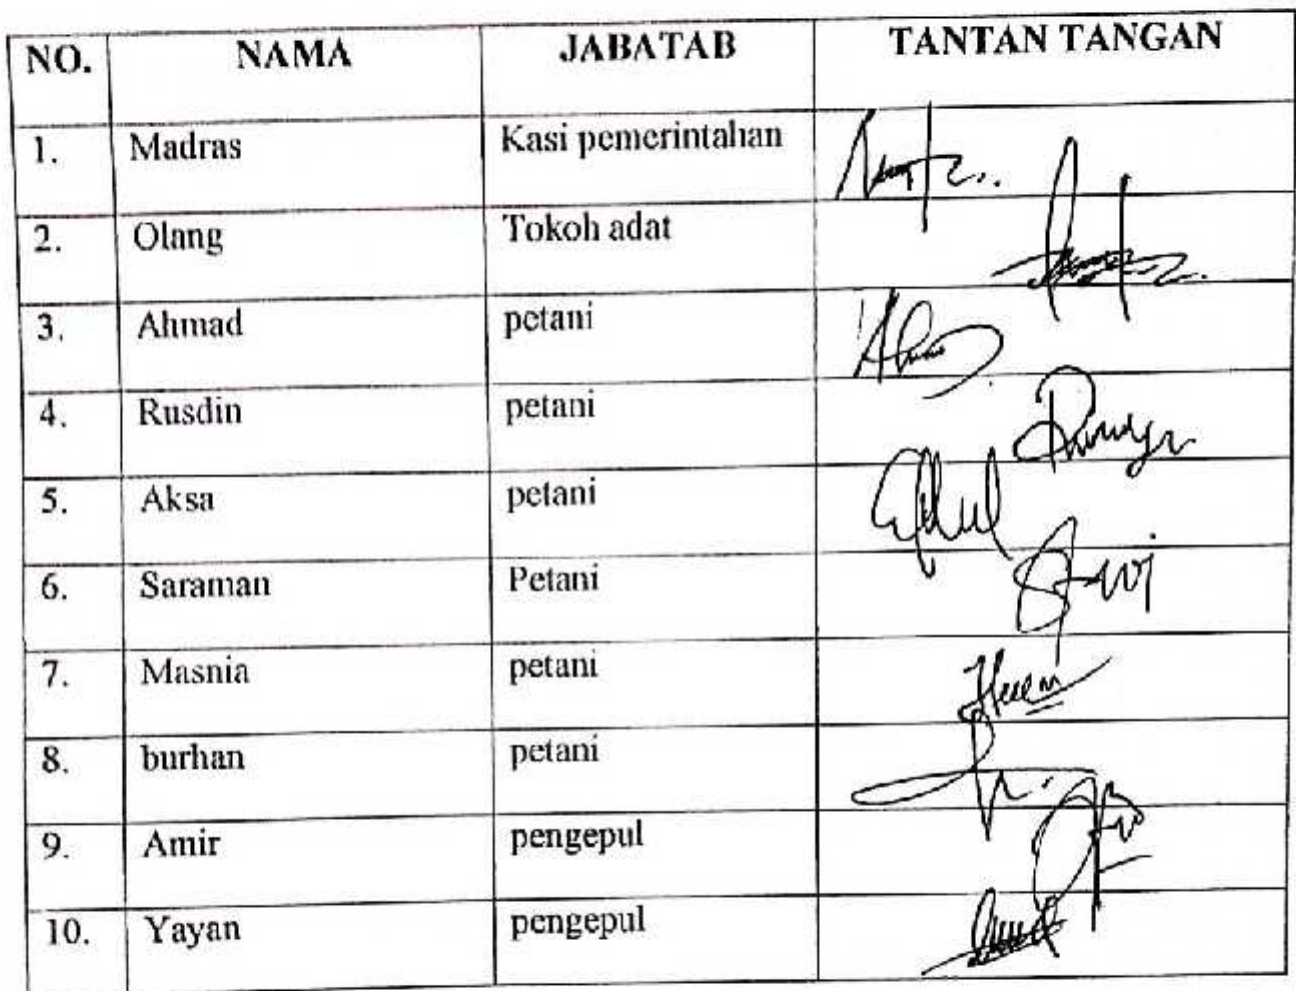 NO. NAMA JABATAB TANTAN TANGAN
1. Madras Kasi pemerintahan
2. Olang Tokoh adat
3. Ahmad petani
4. Rusdin petani
5. Aksa petani
6. Saraman Petani
7. Masnia petani
8. burhan petani
9. Amir pengepul
10. Yayan pengepul